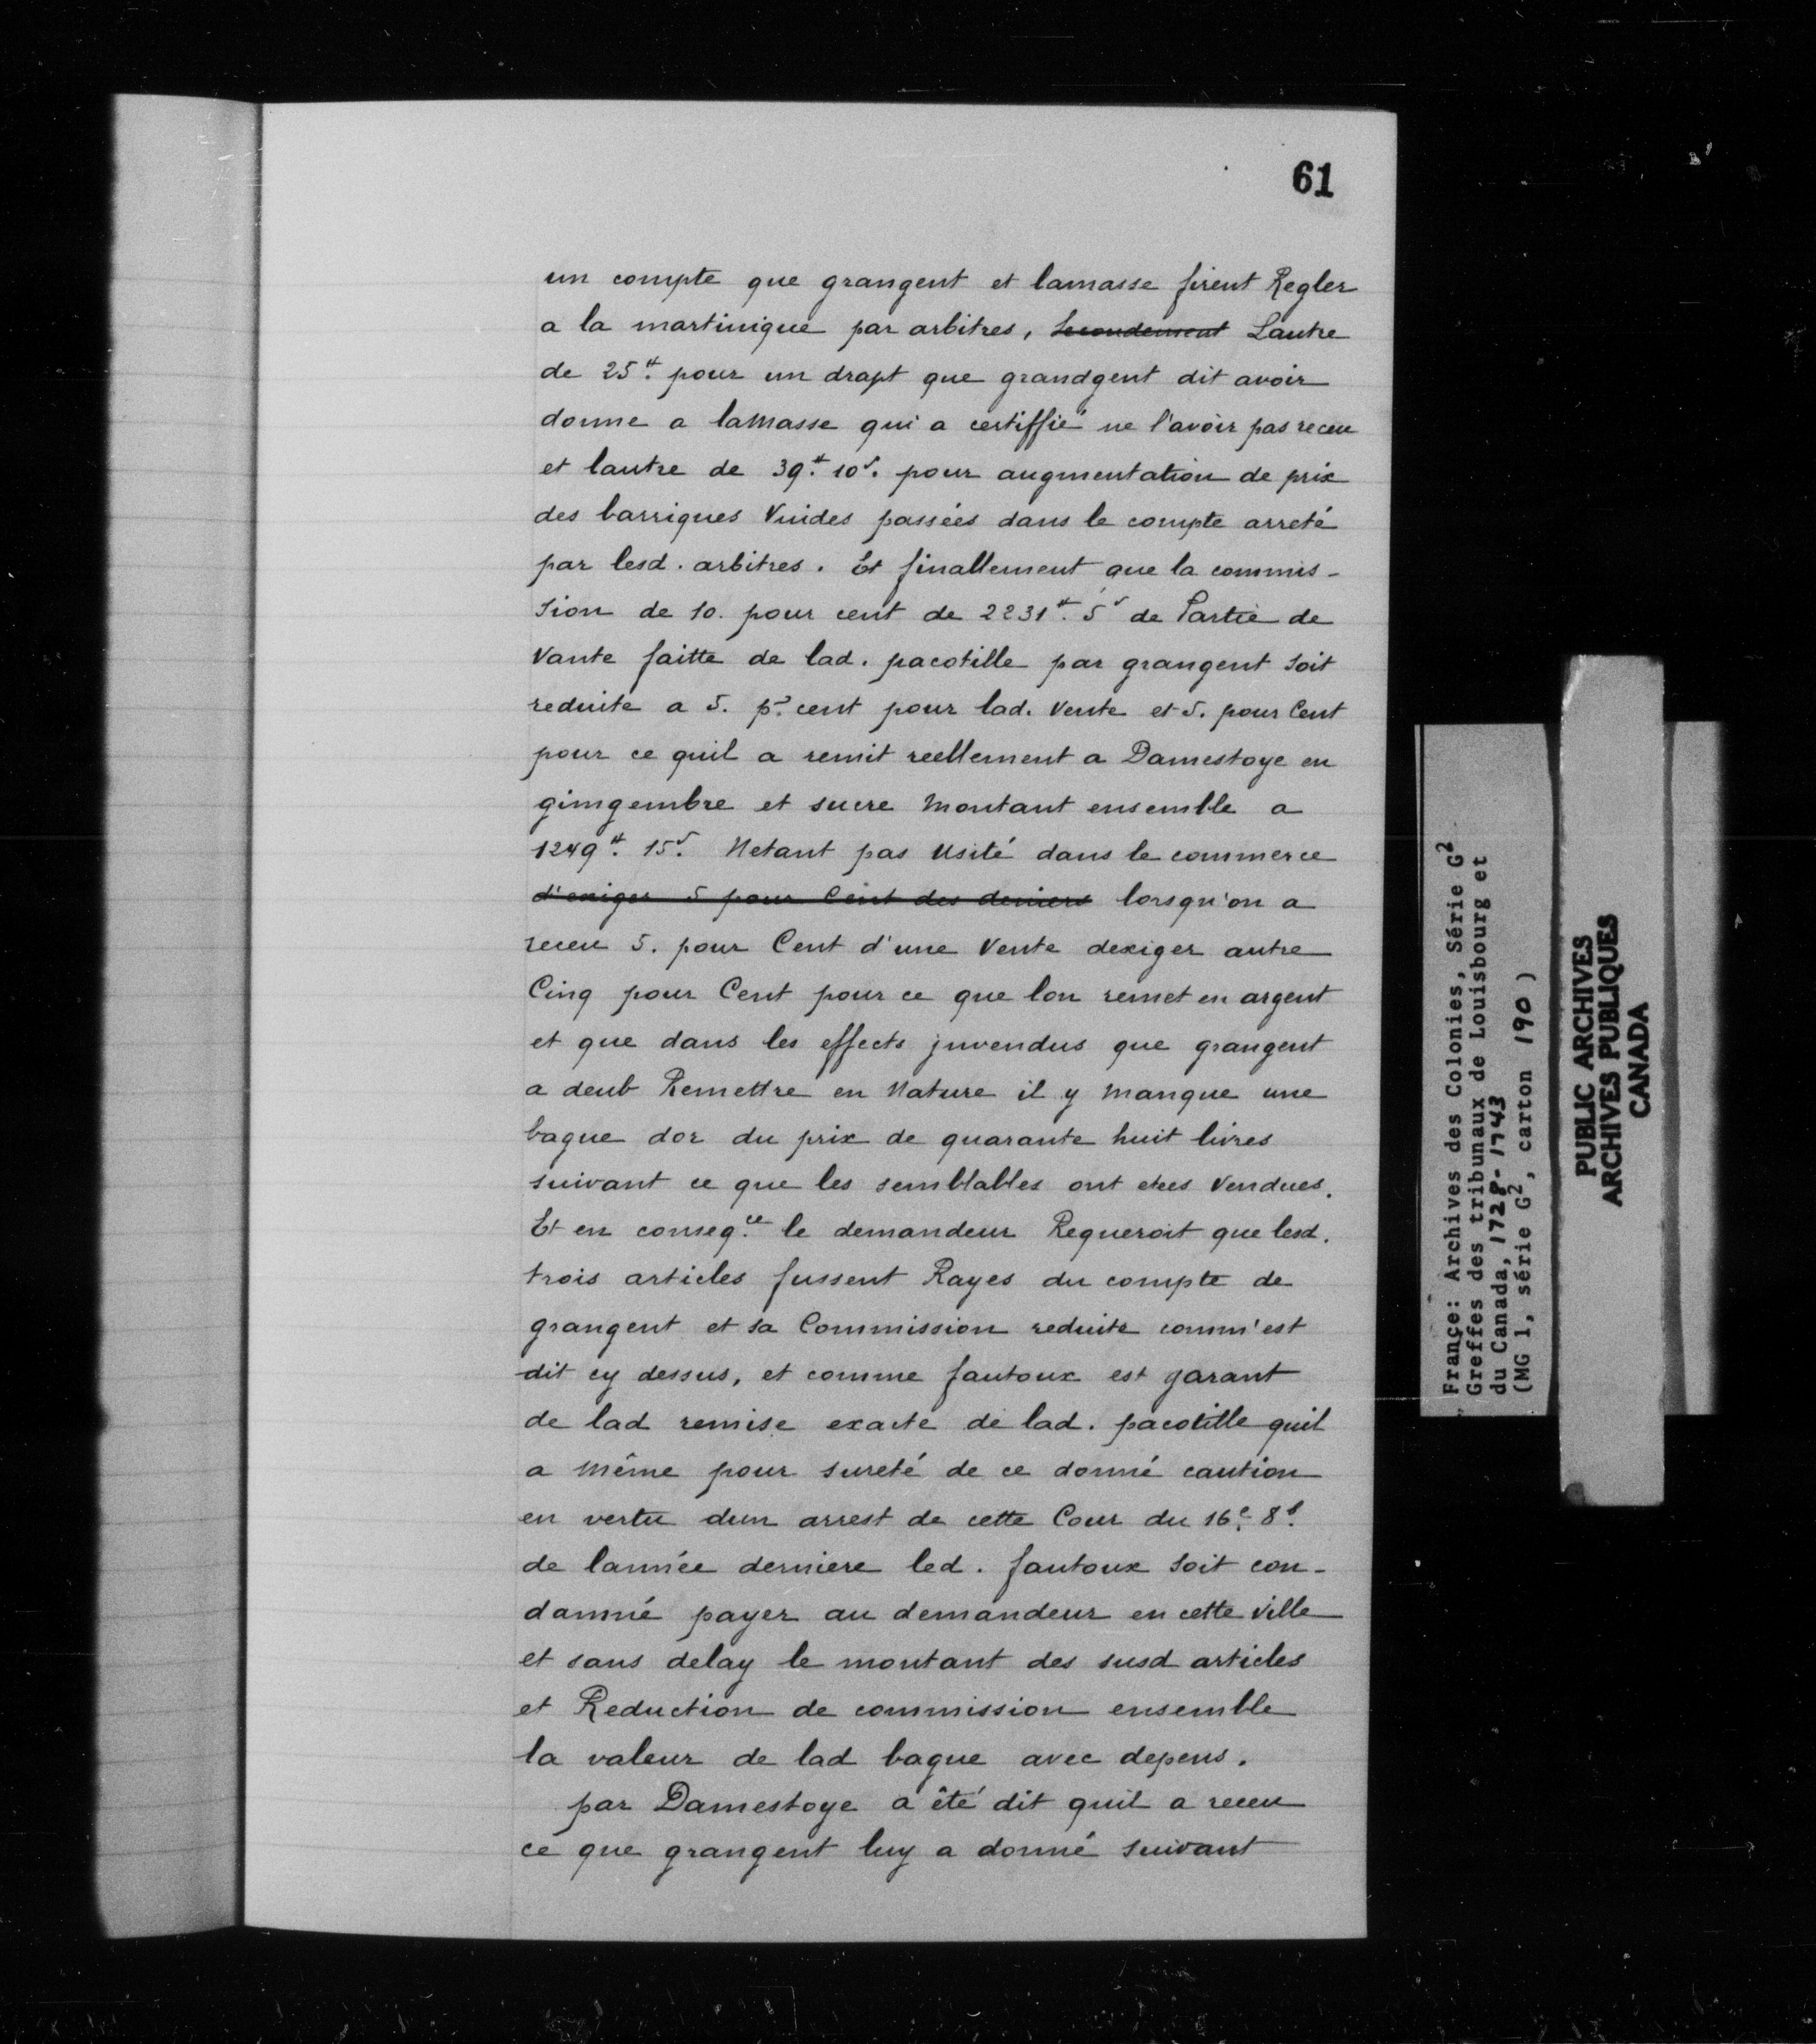 61
un compte que grangent et lamasse firent Regler
a la martinique par arbitres, Secondement Lautre
de 25ᵗᵗ. pour un drapt que grandgent dit avoir
donne a laMasse qui a certiffié ne l'avoir pas receu
et lautre de 39ᵗᵗ. 10ˢ. pour augmentation de prix
des barriques Vuides passées dans le compte arreté
par lesd. arbitres. Et finallement que la commis-
sion de 10. pour cent de 2231ᵗᵗ. 5ˢ de Partie de
Vante faitte de lad. pacotille par grangent soit
reduite a 5. pʳ. cent pour lad. Vente et 5. pour Cent
pour ce quil a remit reellement a Damestoye en
gimgembre et sucre Montant ensemble a
1249ᵗᵗ. 15ˢ. Netant pas Usité dans le commerce
d'exiger 5 pour Cent des deniers lorsqu'on a
receu 5. pour Cent d'une Vente dexiger autre
Cinq pour Cent pour ce que lon remet en argent
et que dans les effects juvendus que grangent
a deub Remettre en Nature il y Manque une
bague dor du prix de quarante huit livres
suivant ce que les semblables ont etees Vendues.
Et en conseq.ᶜᵉ le demandeur Requeroit que lesd.
trois articles fussent Rayes du compte de
grangent et sa Commission reduite comm'est
dit cy dessus, et comme fautoux est garant
de lad remise exacte de lad. pacotille quil
a Même pour sureté de ce donné caution
en vertu dun arrest de cette Cour du 16ᵉ. 8ᵇ.
de lannée derniere led. fautoux soit con-
damné payer au demandeur en cette Ville
et sans delay le montant des susd articles
et Reduction de commission ensemble
la valeur de lad bague avec depens.
par Damestoye a êté dit quil a receu
ce que grangent luy a donné suivant
France: Archives des Colonies, Série G²
Greffes des tribunaux de Louisbourg et
du Canada, 1728-1743
(MG 1, série G², carton 190)
PUBLIC ARCHIVES
ARCHIVES PUBLIQUES
CANADA